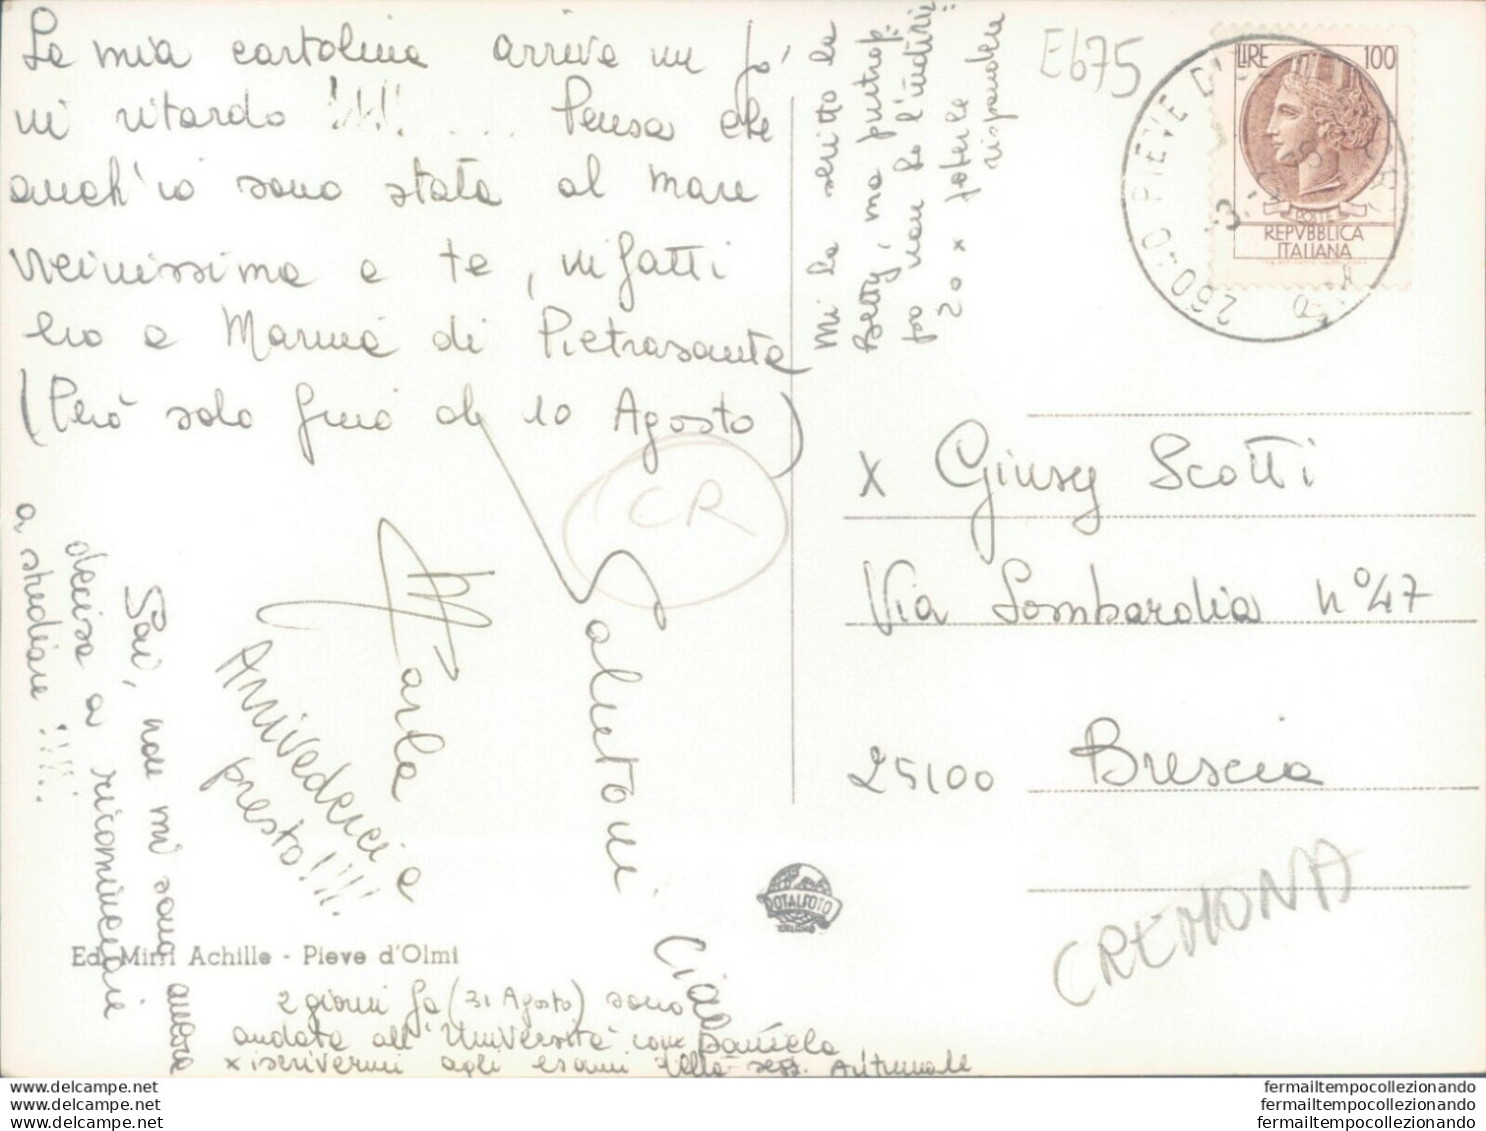 La mia cartolina arriva un po'
in ritardo !!!!... Pensa che
anch'io sono stata al mare
vicinissima a te, infatti
ero a Marina di Pietrasanta
(Però solo fino al 10 Agosto)
Salutoni
Carla
Arrivederci a
presto!!!!
Sai, non mi sono ancora
decisa a ricominciare
a studiare !!!!
Ciao
2 giorni fa (31 Agosto) sono
andata all'Università con Daniela
x iscrivermi agli esami della sess. autunnale
Mi ha scritto la
Betty, ma purtrop-
po non ho l'indiriz-
zo x poterle
rispondere
E675
LIRE 100
POSTE
REPVBBLICA
ITALIANA
26040 PIEVE D'
x Giusy Scotti
Via Lombardia n°47
25100 Brescia
CR
CREMONA
ROTALFOTO
MILANO
Ed. Mirri Achille - Pieve d'Olmi
fermailtempocollezionando
fermailtempocollezionando
fermailtempocollezionando
delcampe.net
delcampe.net
delcampe.net